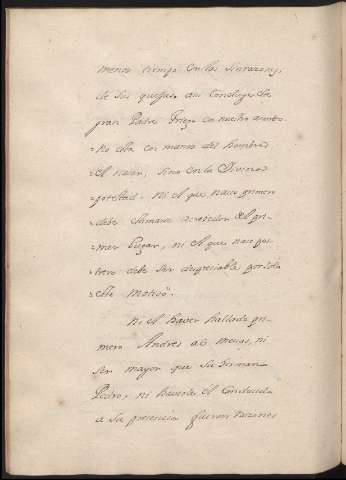 menos tiempo en las sinrazones,
de sus quejas, así concluye el
gran Padre Griego con nuestro asunto
No está en manos del hombre
el nacer, sino en la Divina
potestad. Ni el que nace primero
debe llamarse acreedor del pri-
mer lugar, ni el que nace pos-
trero debe ser despreciable por solo
este motivo.
Ni el haver hallado pri-
mero Andres al mesias, ni
ser mayor que su hermano
Pedro, ni haverle el conducido
a su presencia fueron razones